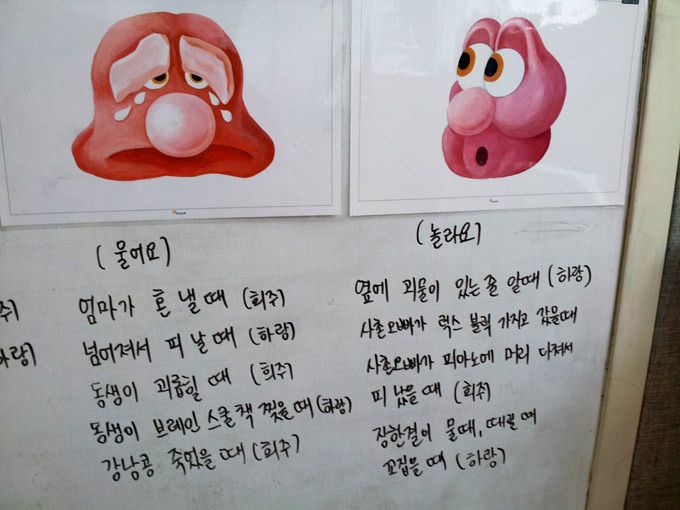 (울어요)
주)
엄마가 혼 낼 때 (희주)
하랑)
넘어져서 피 날 때 (하랑)
동생이 괴롭힐 때 (희주)
동생이 브레인 스쿨 책 찢을 때 (하랑)
강낭콩 죽었을 때 (희주)
(놀라요)
옆에 괴물이 있는 줄 알때 (하랑)
사촌오빠가 럭스 블럭 가지고 갔을때
사촌오빠가 피아노에 머리 다쳐서
피 났을 때 (희주)
장한결이 물때, 때릴 때
꼬집을 때 (하랑)